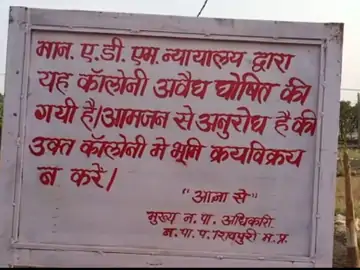 मान. ए.डी. एम. न्यायालय द्वारा
यह कॉलोनी अवैध घोषित की
गयी है। आमजन से अनुरोध है की
उक्त कॉलोनी मे भूमि क्रयविक्रय
न करें।
"आज्ञा से"
मुख्य न. पा. अधिकारी
न. पा. प. शिवपुरी म.प्र.